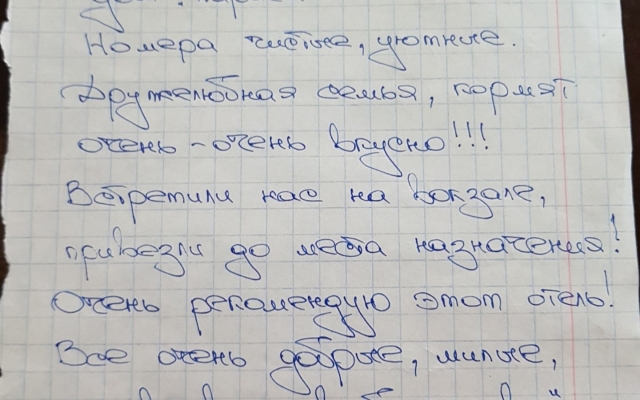 Номера чистые, уютные.
Дружелюбная семья, кормят
очень-очень вкусно!!!
Встретили нас на вокзале,
привезли до места назначения!
Очень рекомендую этот отель!
Все очень добрые, милые,